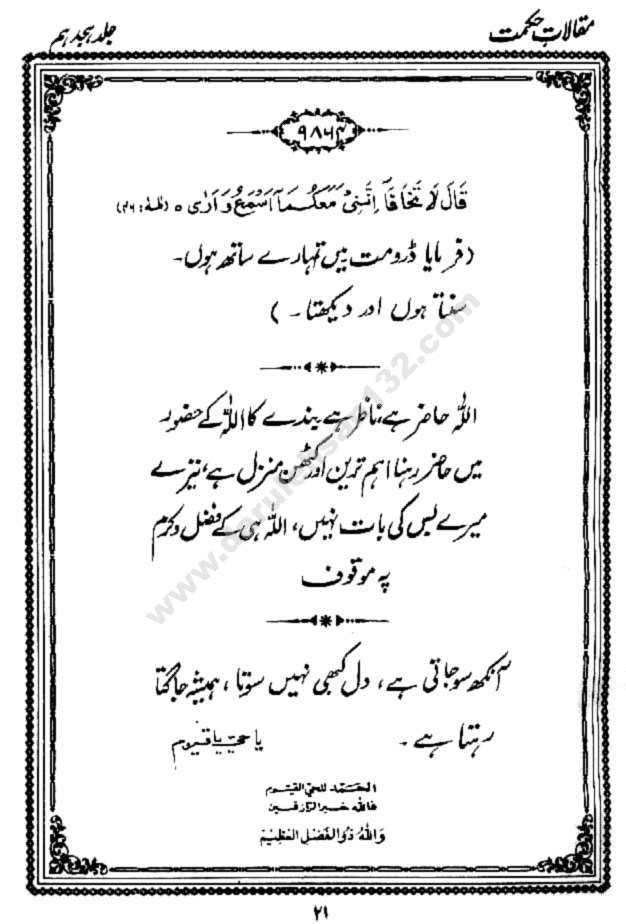 مقالاتِ حکمت
جلد ہیجدہم
۹۸۶۴
قَالَ لَا تَخَافَآ اِنَّنِیْ مَعَکُمَآ اَسْمَعُ وَ اَرٰی ٥ (طٰہٰ : ۴۶)
(فرمایا ڈرو مت میں تمہارے ساتھ ہوں۔
سنتا ہوں اور دیکھتا۔)
اللہ حاضر ہے، ناظر ہے بندے کا اللہ کے حضور
میں حاضر رہنا اہم ترین اور کٹھن منزل ہے، تیرے
میرے بس کی بات نہیں، اللہ ہی کے فضل و کرم
پہ موقوف
آنکھ سو جاتی ہے، دل کبھی نہیں سوتا، ہمیشہ جاگتا
رہتا ہے۔ یا حیّ یا قیوم
الحمد للحی القیوم
فاللہ خیر الرازقین
وَاللہُ ذُوالفَضْلِ العَظِیْم
۲۱
www.darulehsan132.com